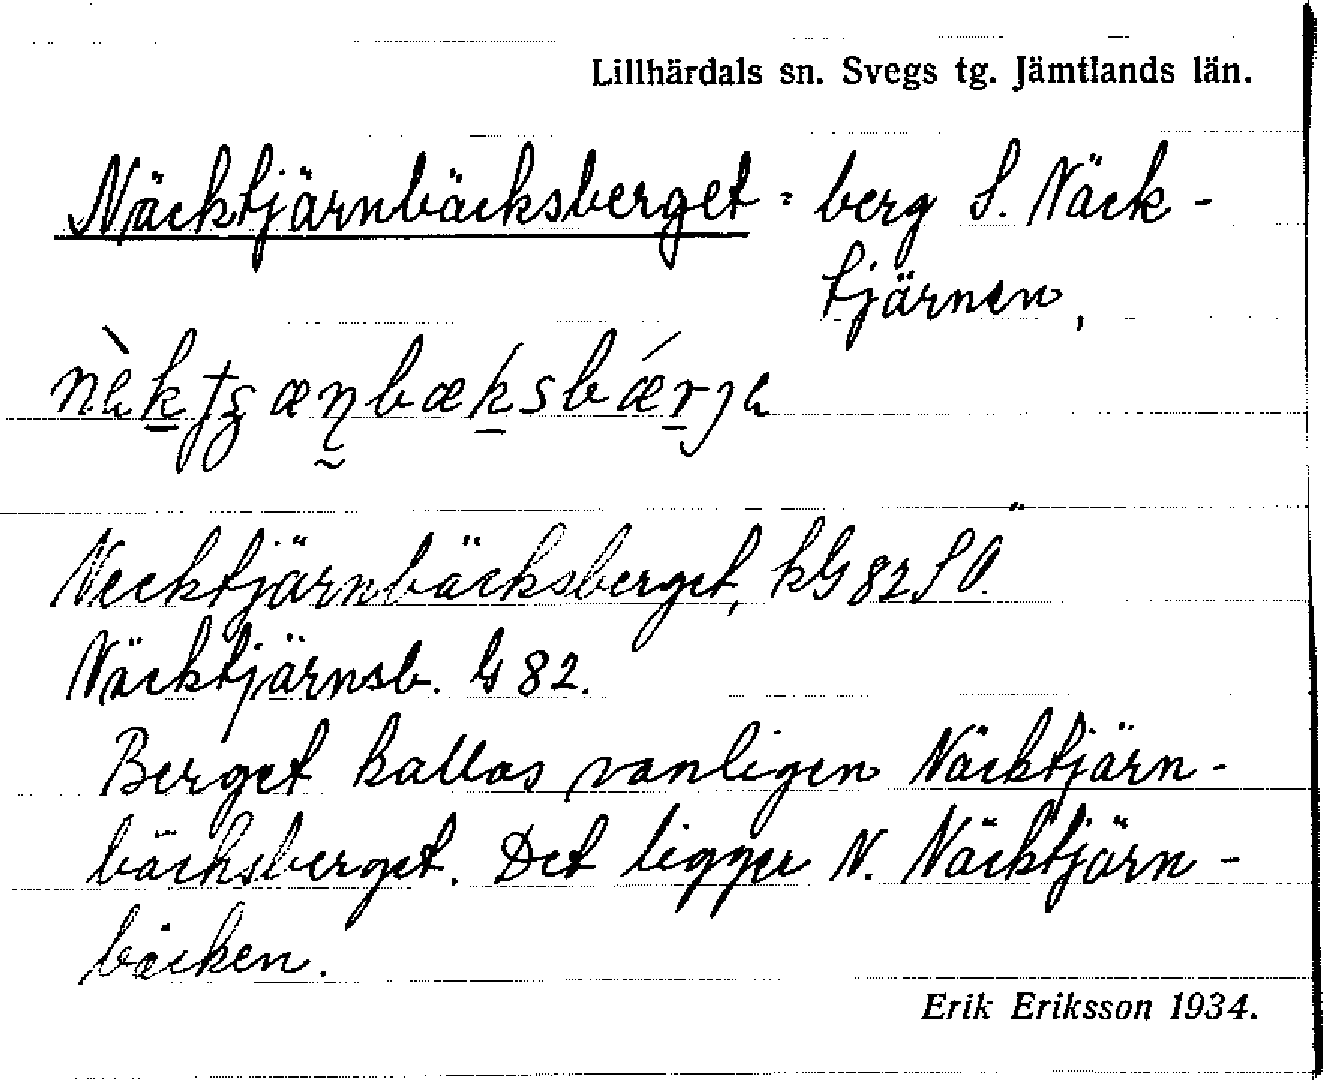 Lillhärdals sn. Svegs tg. Jämtlands län.
Näcktjärnbäcksberget = berg S. Näck-
tjärnen,
Necktjärnbäcksberget, kG 82 SÖ.
Näcktjärnsb. G 82.
Berget kallas vanligen Näcktjärn-
bäcksberget. Det ligger N. Näcktjärn-
bäcken.
Erik Eriksson 1934.